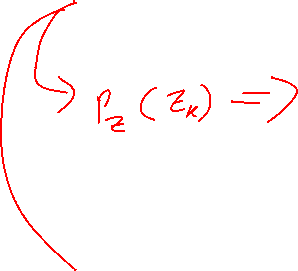 p_z(z_k) =>